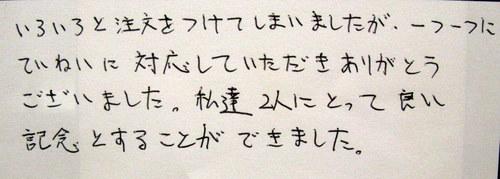 いろいろと注文をつけてしまいましたが、一つ一つに
ていねいに対応していただきありがとう
ございました。私達2人にとって良い
記念とすることができました。